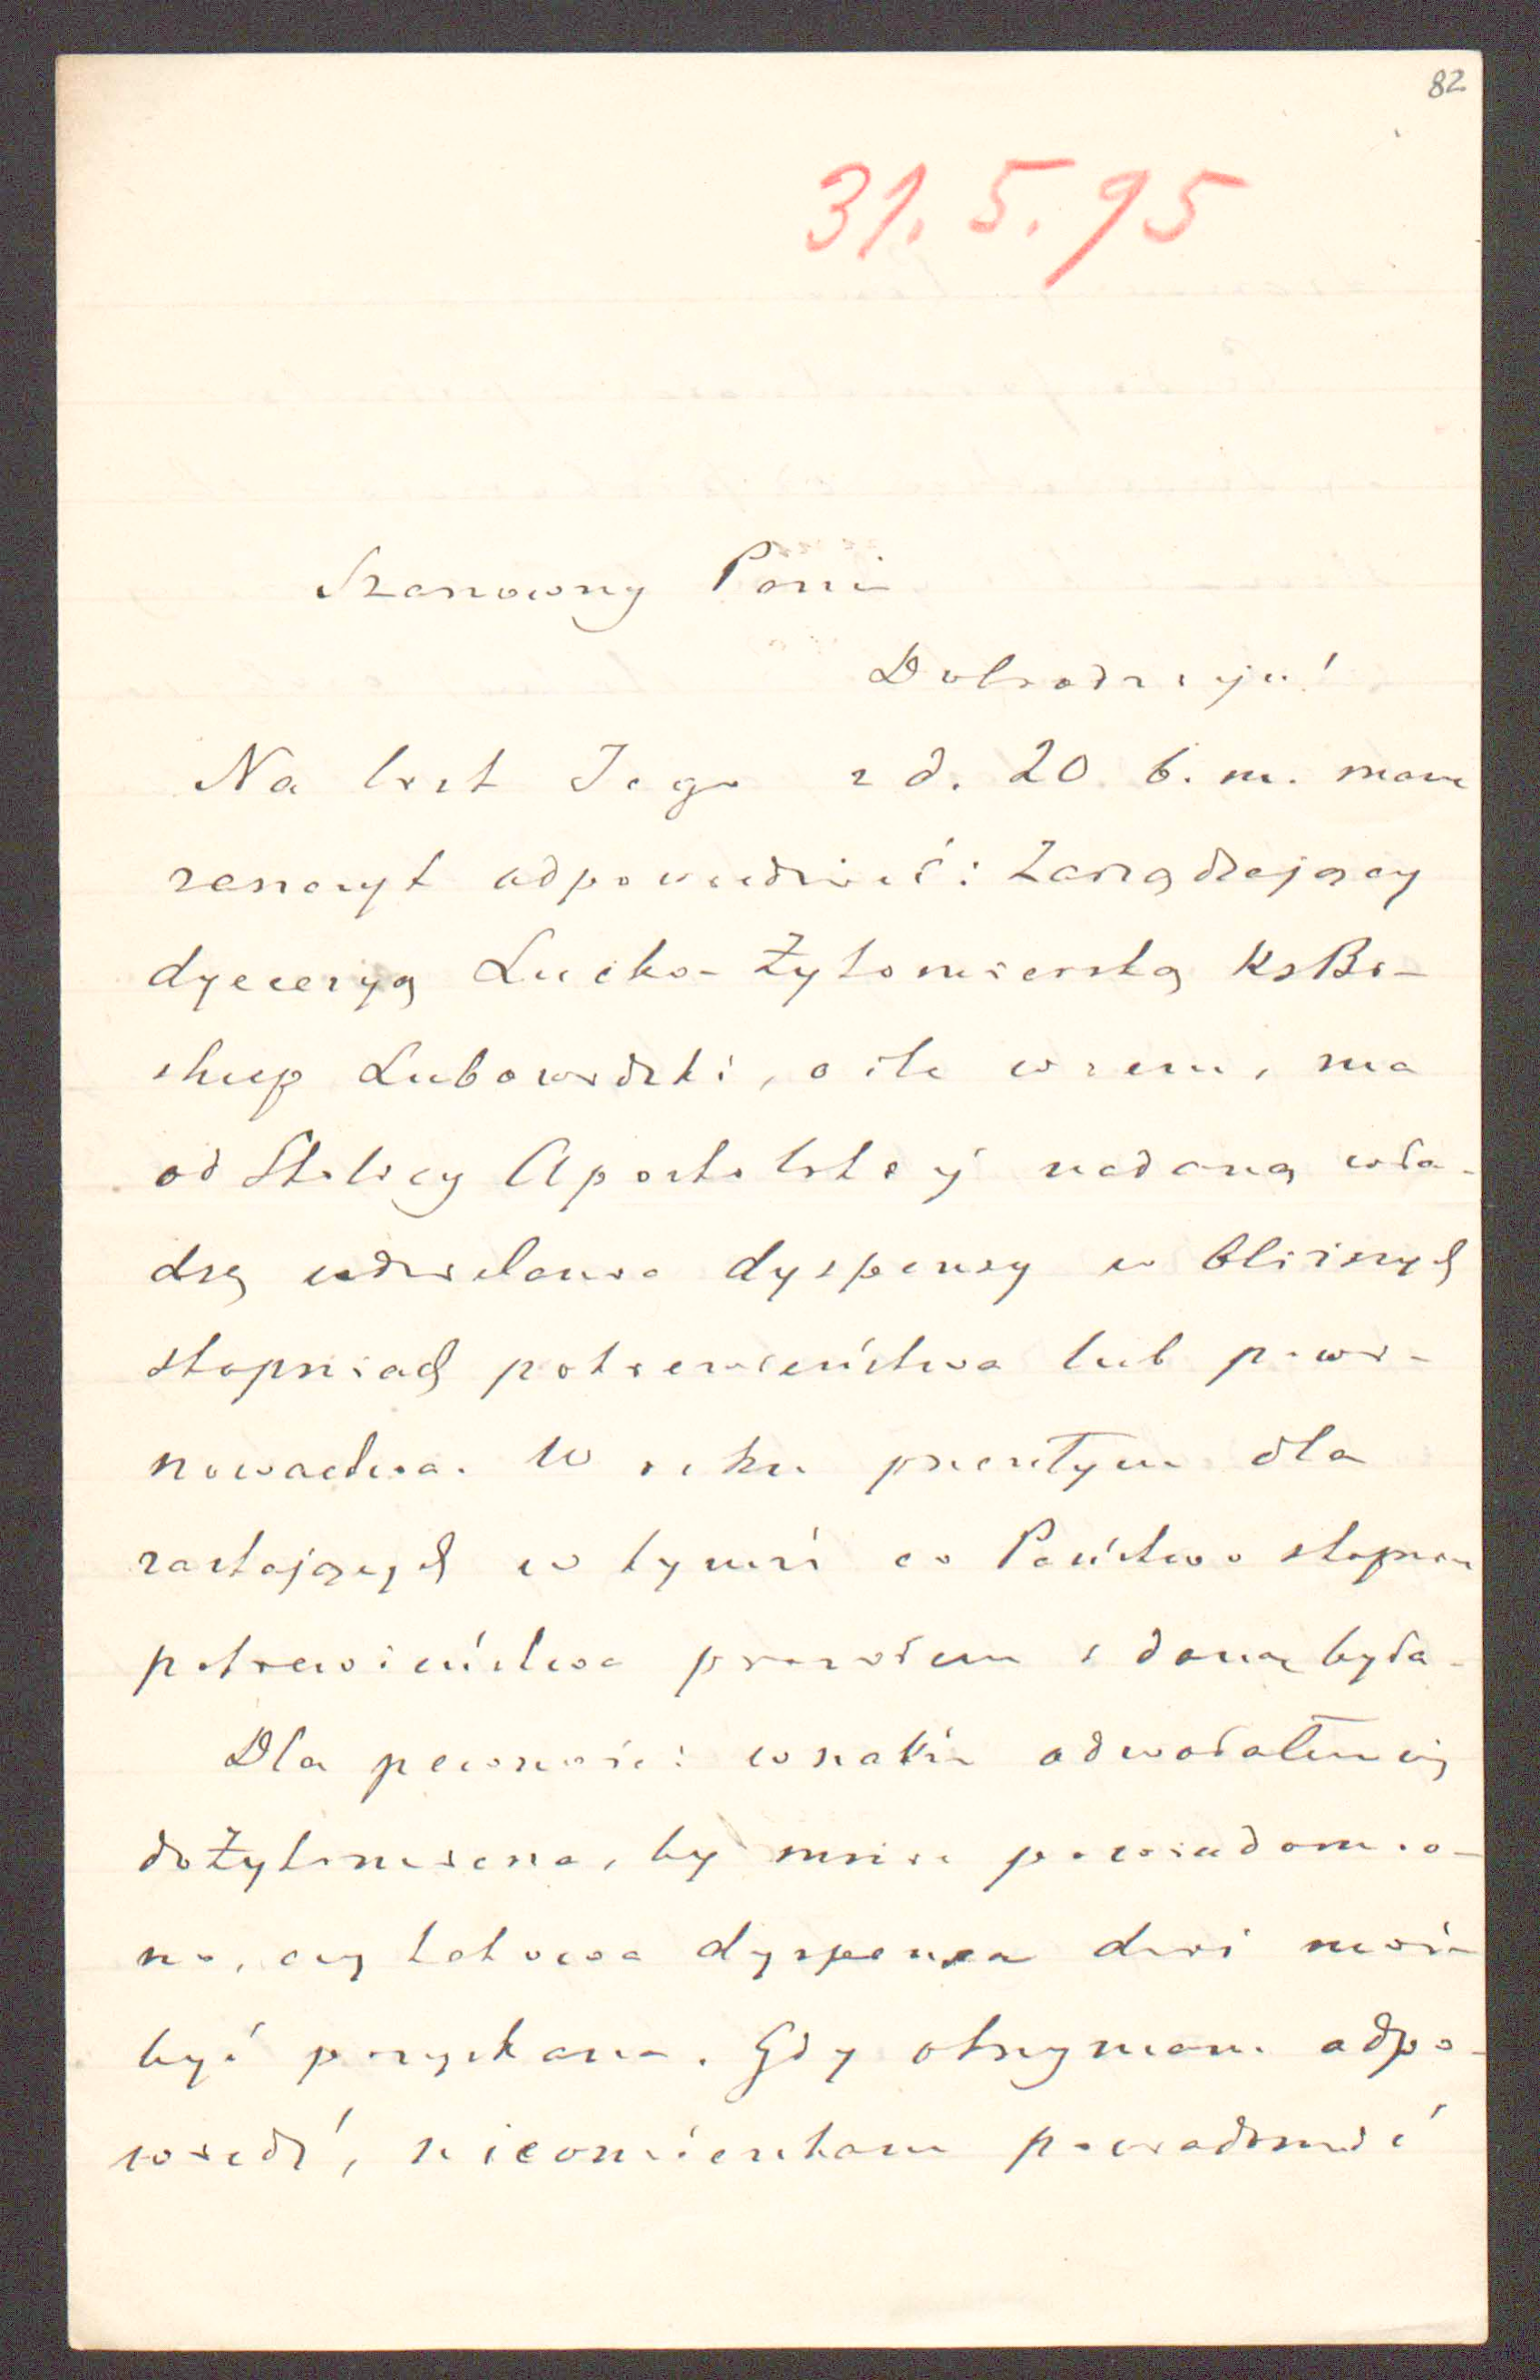 82
31. 5. 95
Szanowny Panie
Dobrodzieju!
Na list Jego z d. 20 b. m. mam
zaszczyt odpowiedzieć: Zarządzający
dyecezyą Łucko-Żytomierską Ks Bi-
skup Lubowidzki, o ile wiem, ma
od Stolicy Apostolskiej nadaną wła-
dzę udzielania dyspensy w bliższych
stopniach pokrewieństwa lub powi-
nowactwa. W roku przeszłym dla
zostających w tymże co Państwo stopniu
pokrewieństwa prawem daną była.
Dla pewności wszakże odwołałem się
do Żytomierza, by mnie powiadomio-
no, czy takowa dyspensa dziś może
być pozyskana. Gdy otrzymam odpo-
wiedź, nieomieszkam powiadomić